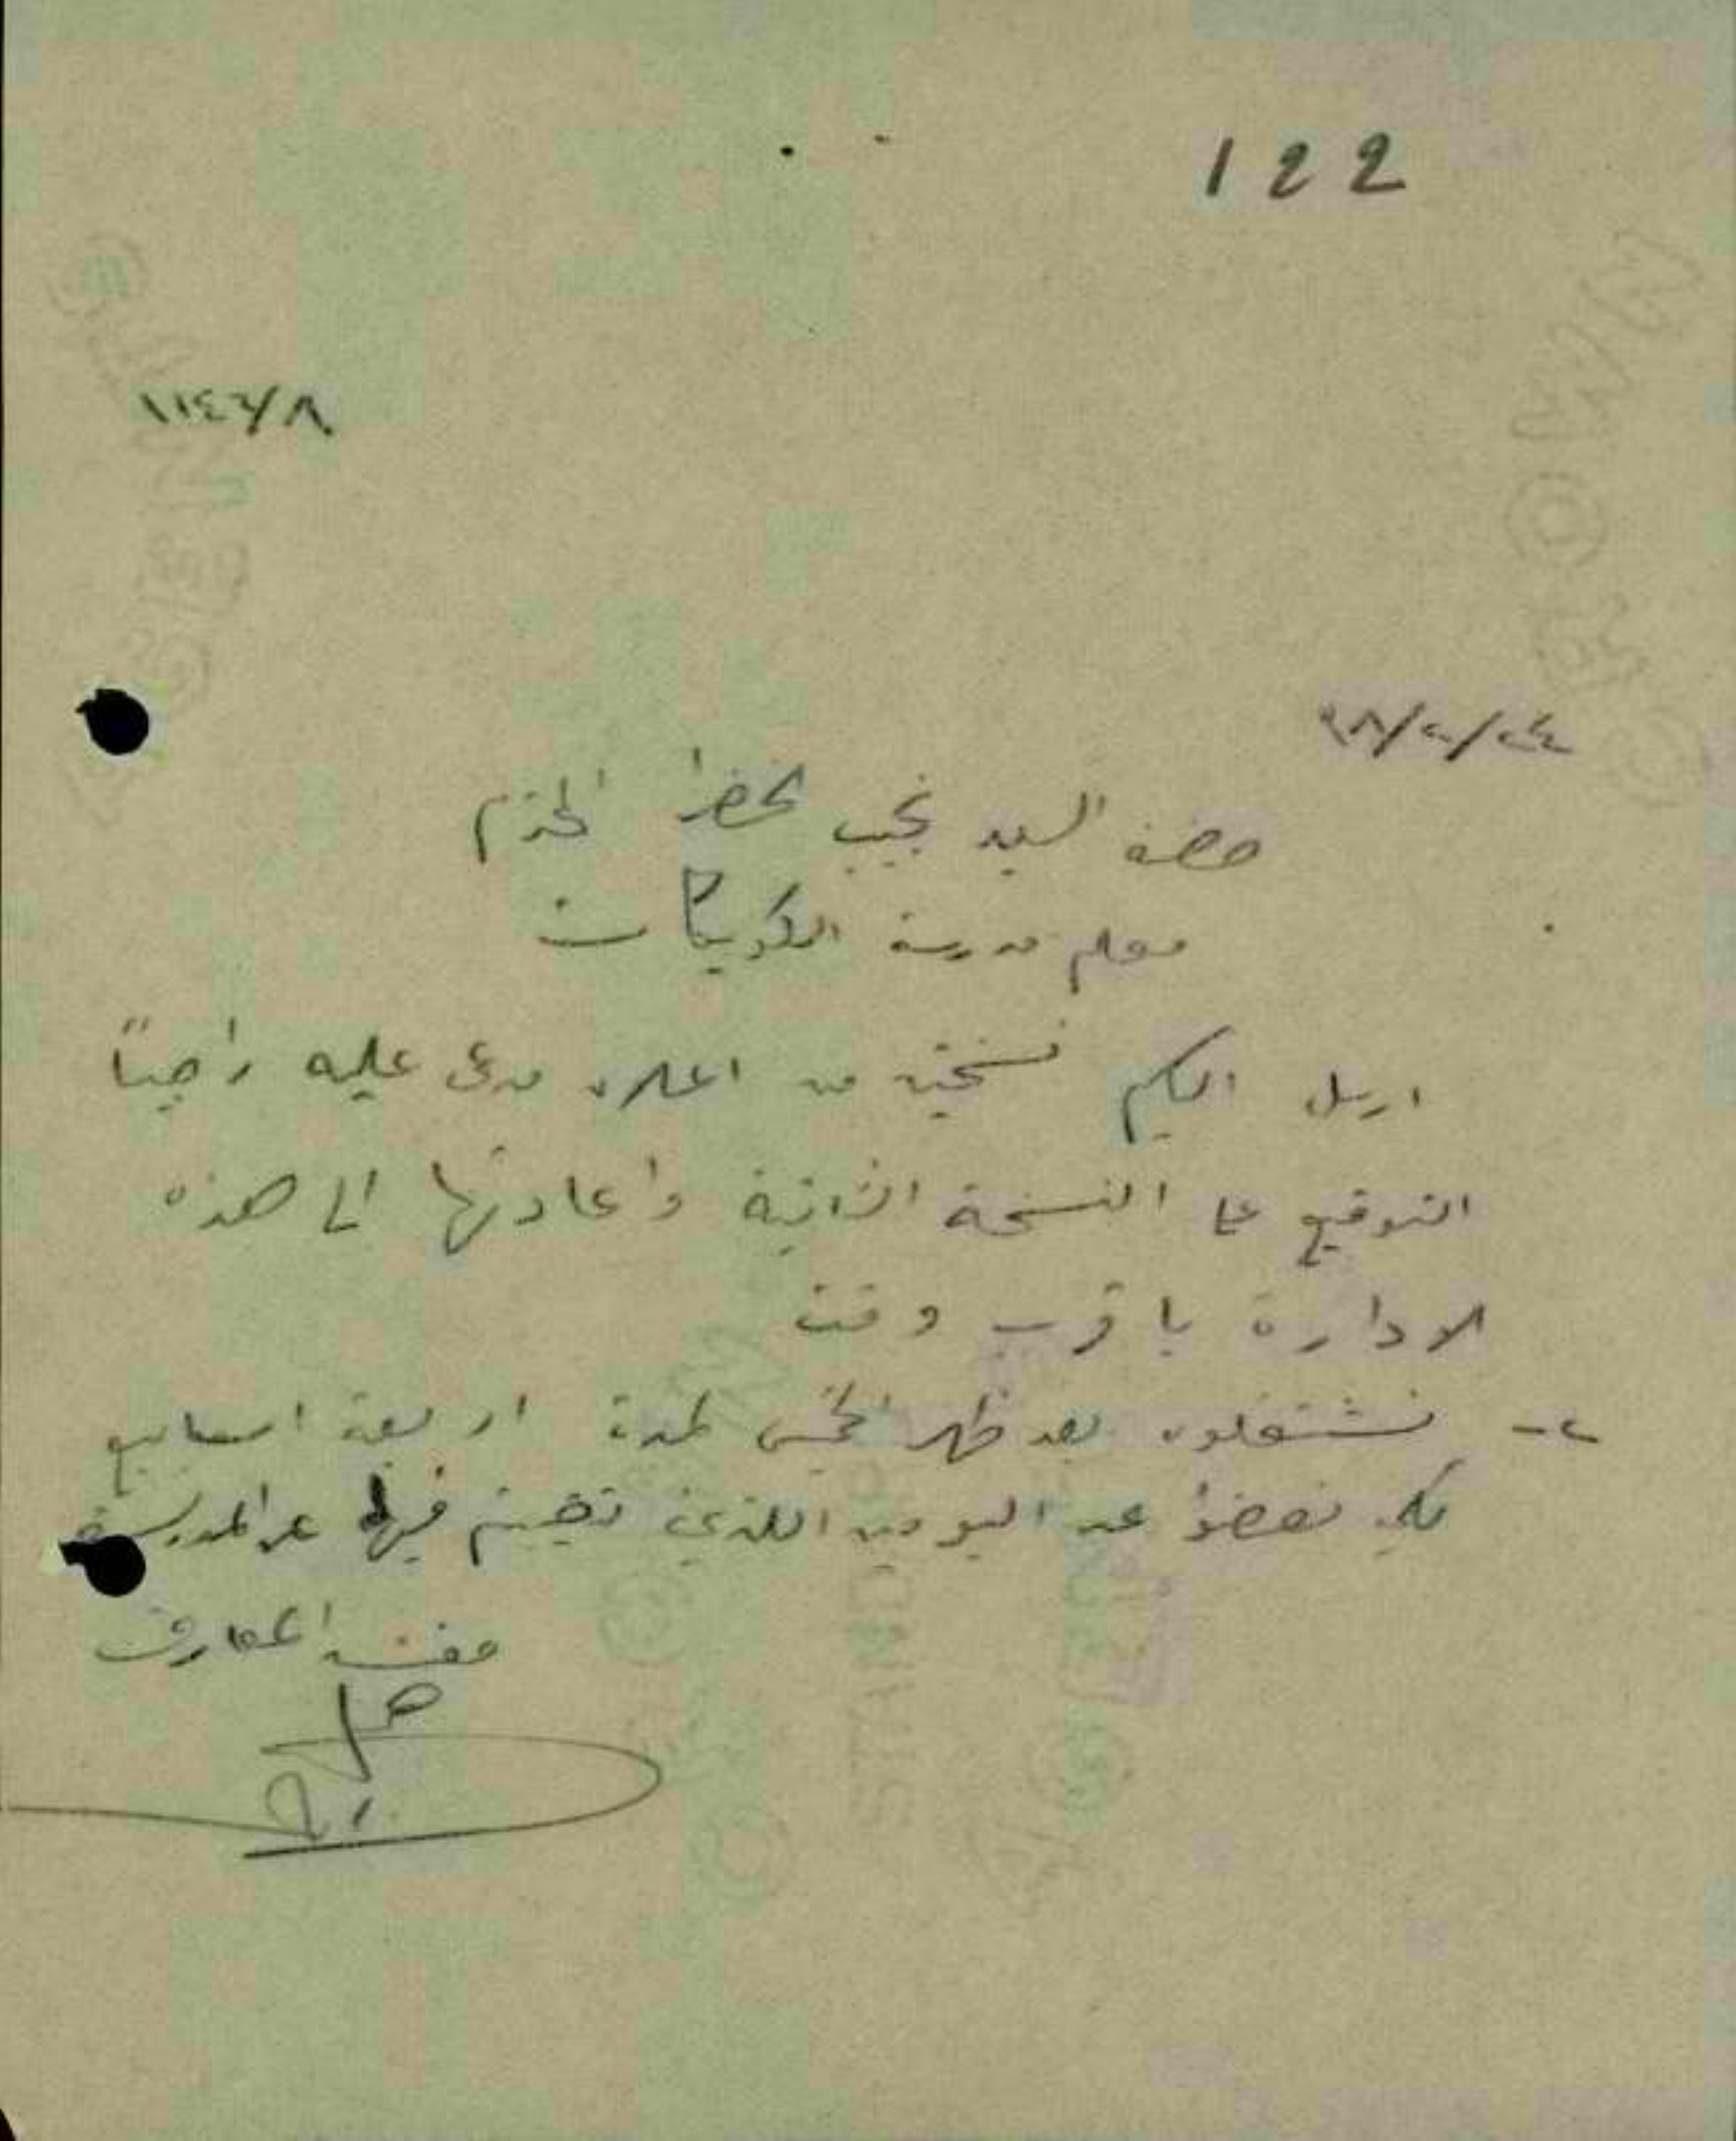 122
١١٤٦/٨
حضرة السيد نجيب المحترم
معلم مدرسة الكويكات
ارسل اليكم نسختين من اعلان مدعى عليه راجياً
التوقيع على النسخة الثانية واعادتها الى هذه
الادارة باقرب وقت
٢- تشتغلون بعد ظهر الخميس لمدة اربعة اسابيع
لكي تعوضوا عن اليومين اللذين تغيبتم فيها عن المدرسة
مفتش المعارف